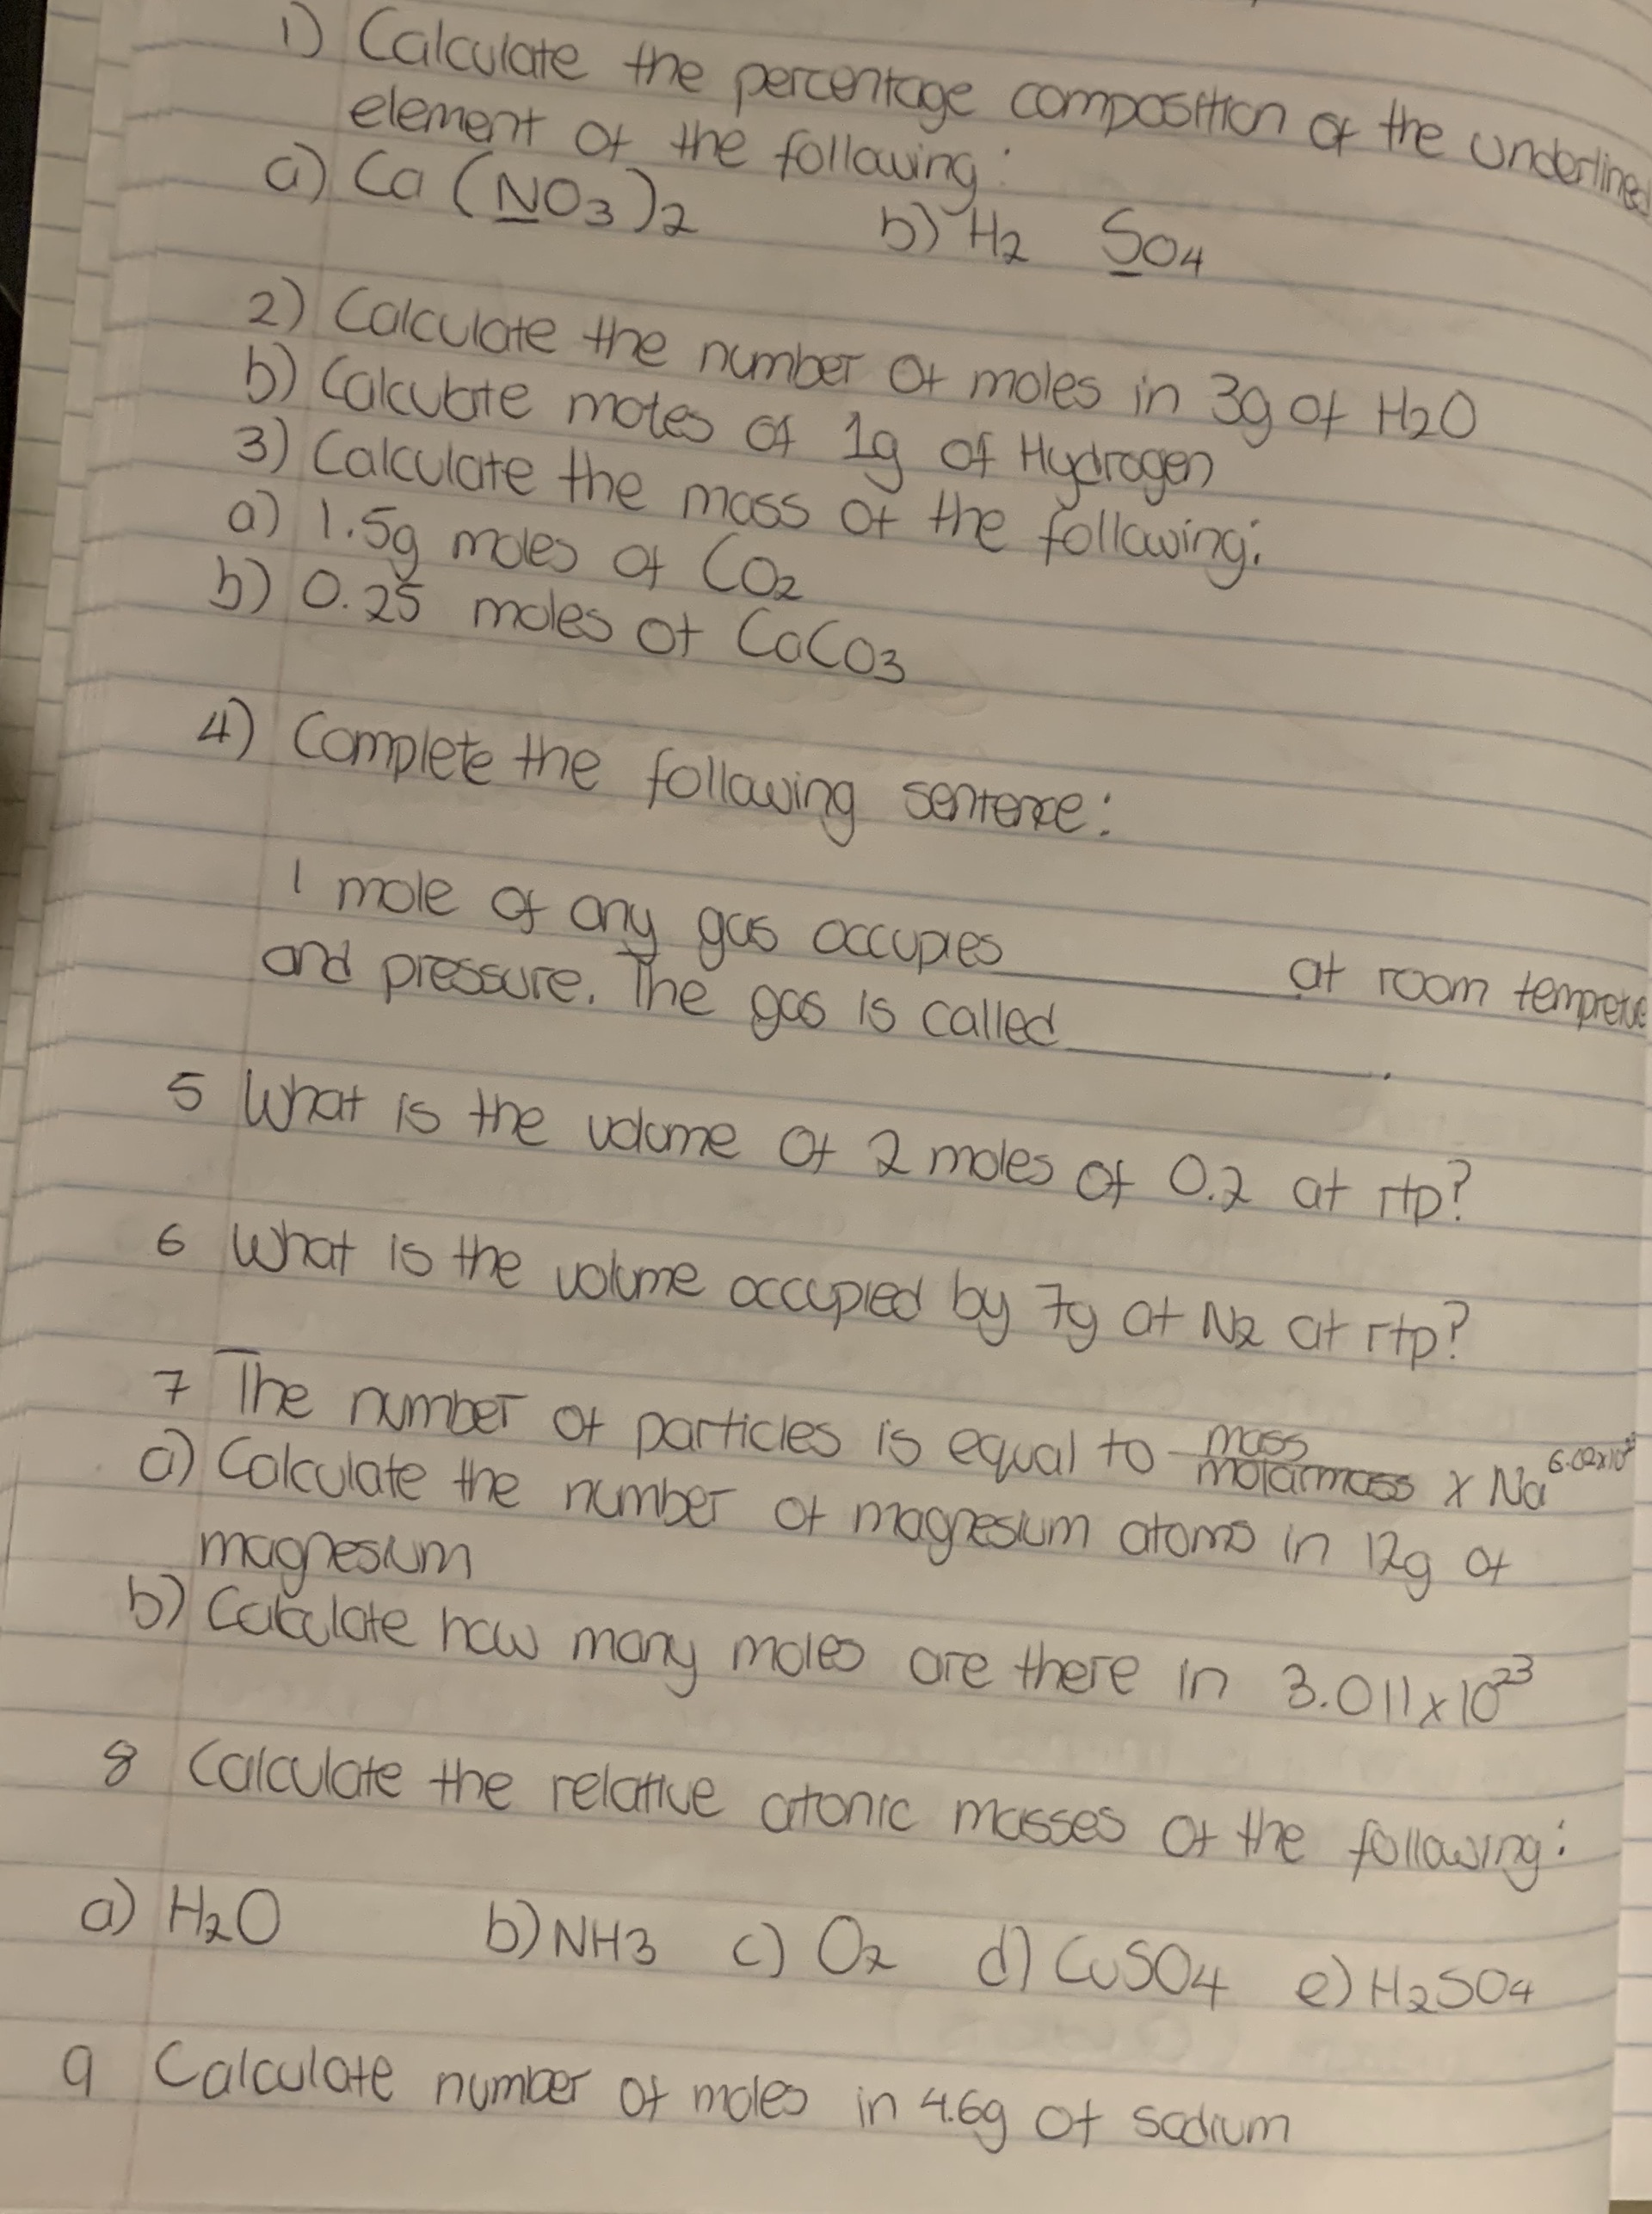 1) Calculate the percentage composition of the underlined
element of the following:
a) Ca (NO3)2 b) H2 SO4
2) Calculate the number of moles in 3g of H2O
b) Calculate moles of 1g of Hydrogen
3) Calculate the mass of the following:
a) 1.5g moles of CO2
b) 0.25 moles of CaCO3
4) Complete the following sentence:
1 mole of any gas occupies __________ at room
and pressure. The gas is called __________.
5 What is the volume of 2 moles of 0.2 at rtp?
6 What is the volume occupied by 7g of N2 at rtp?
7 The number of particles is equal to mass/molarmass x Na 6.02x10²³
a) Calculate the number of magnesium atoms in 12g of
magnesium
b) Calculate how many moles are there in 3.011x10²³
8 Calculate the relative atomic masses of the following:
a) H2O b) NH3 c) O2 d) CuSO4 e) H2SO4
9 Calculate number of moles in 4.6g of sodium